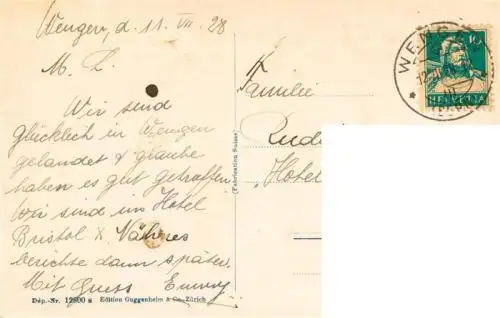 Wengen, d. 11. VII. 28
M. L.
Wir sind
glücklich in Wengen
gelandet & glaube
haben es gut getroffen
Wir sind im Hotel
Bristol & Näheres
berichte dann später.
Mit Gruss Emmy
Dép.-Nr. 12800 Edition Guggenheim & Co., Zürich
(Fabrication Suisse)
Familie
"Hotel
WENGEN
10
HELVETIA